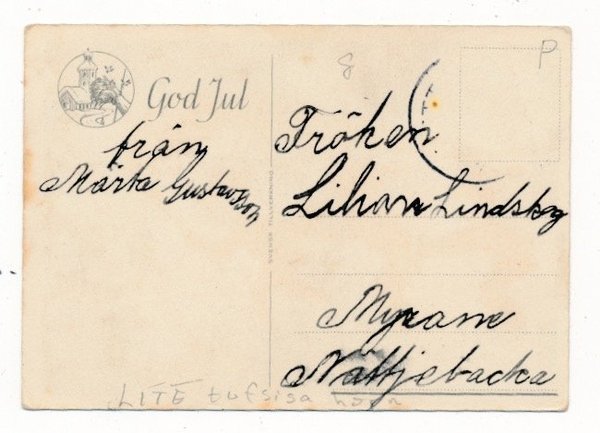 God Jul
från
Märta Gustavsson
SVENSK TILLVERKNING
Fröken
Lilian Lindskog
Myrane
Nättjebacka
P
LITE tufsiga hörn